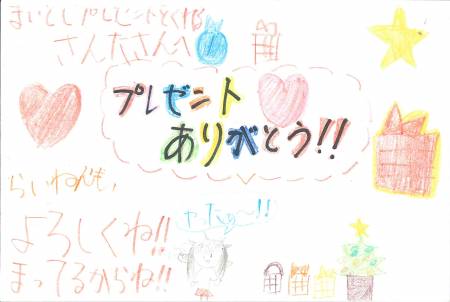 まいとしプレゼントをくれる
さんたさんへ
プレゼント
ありがとう!!
らいねんも、
よろしくね!!
まってるからね!!
やったぁ〜!!